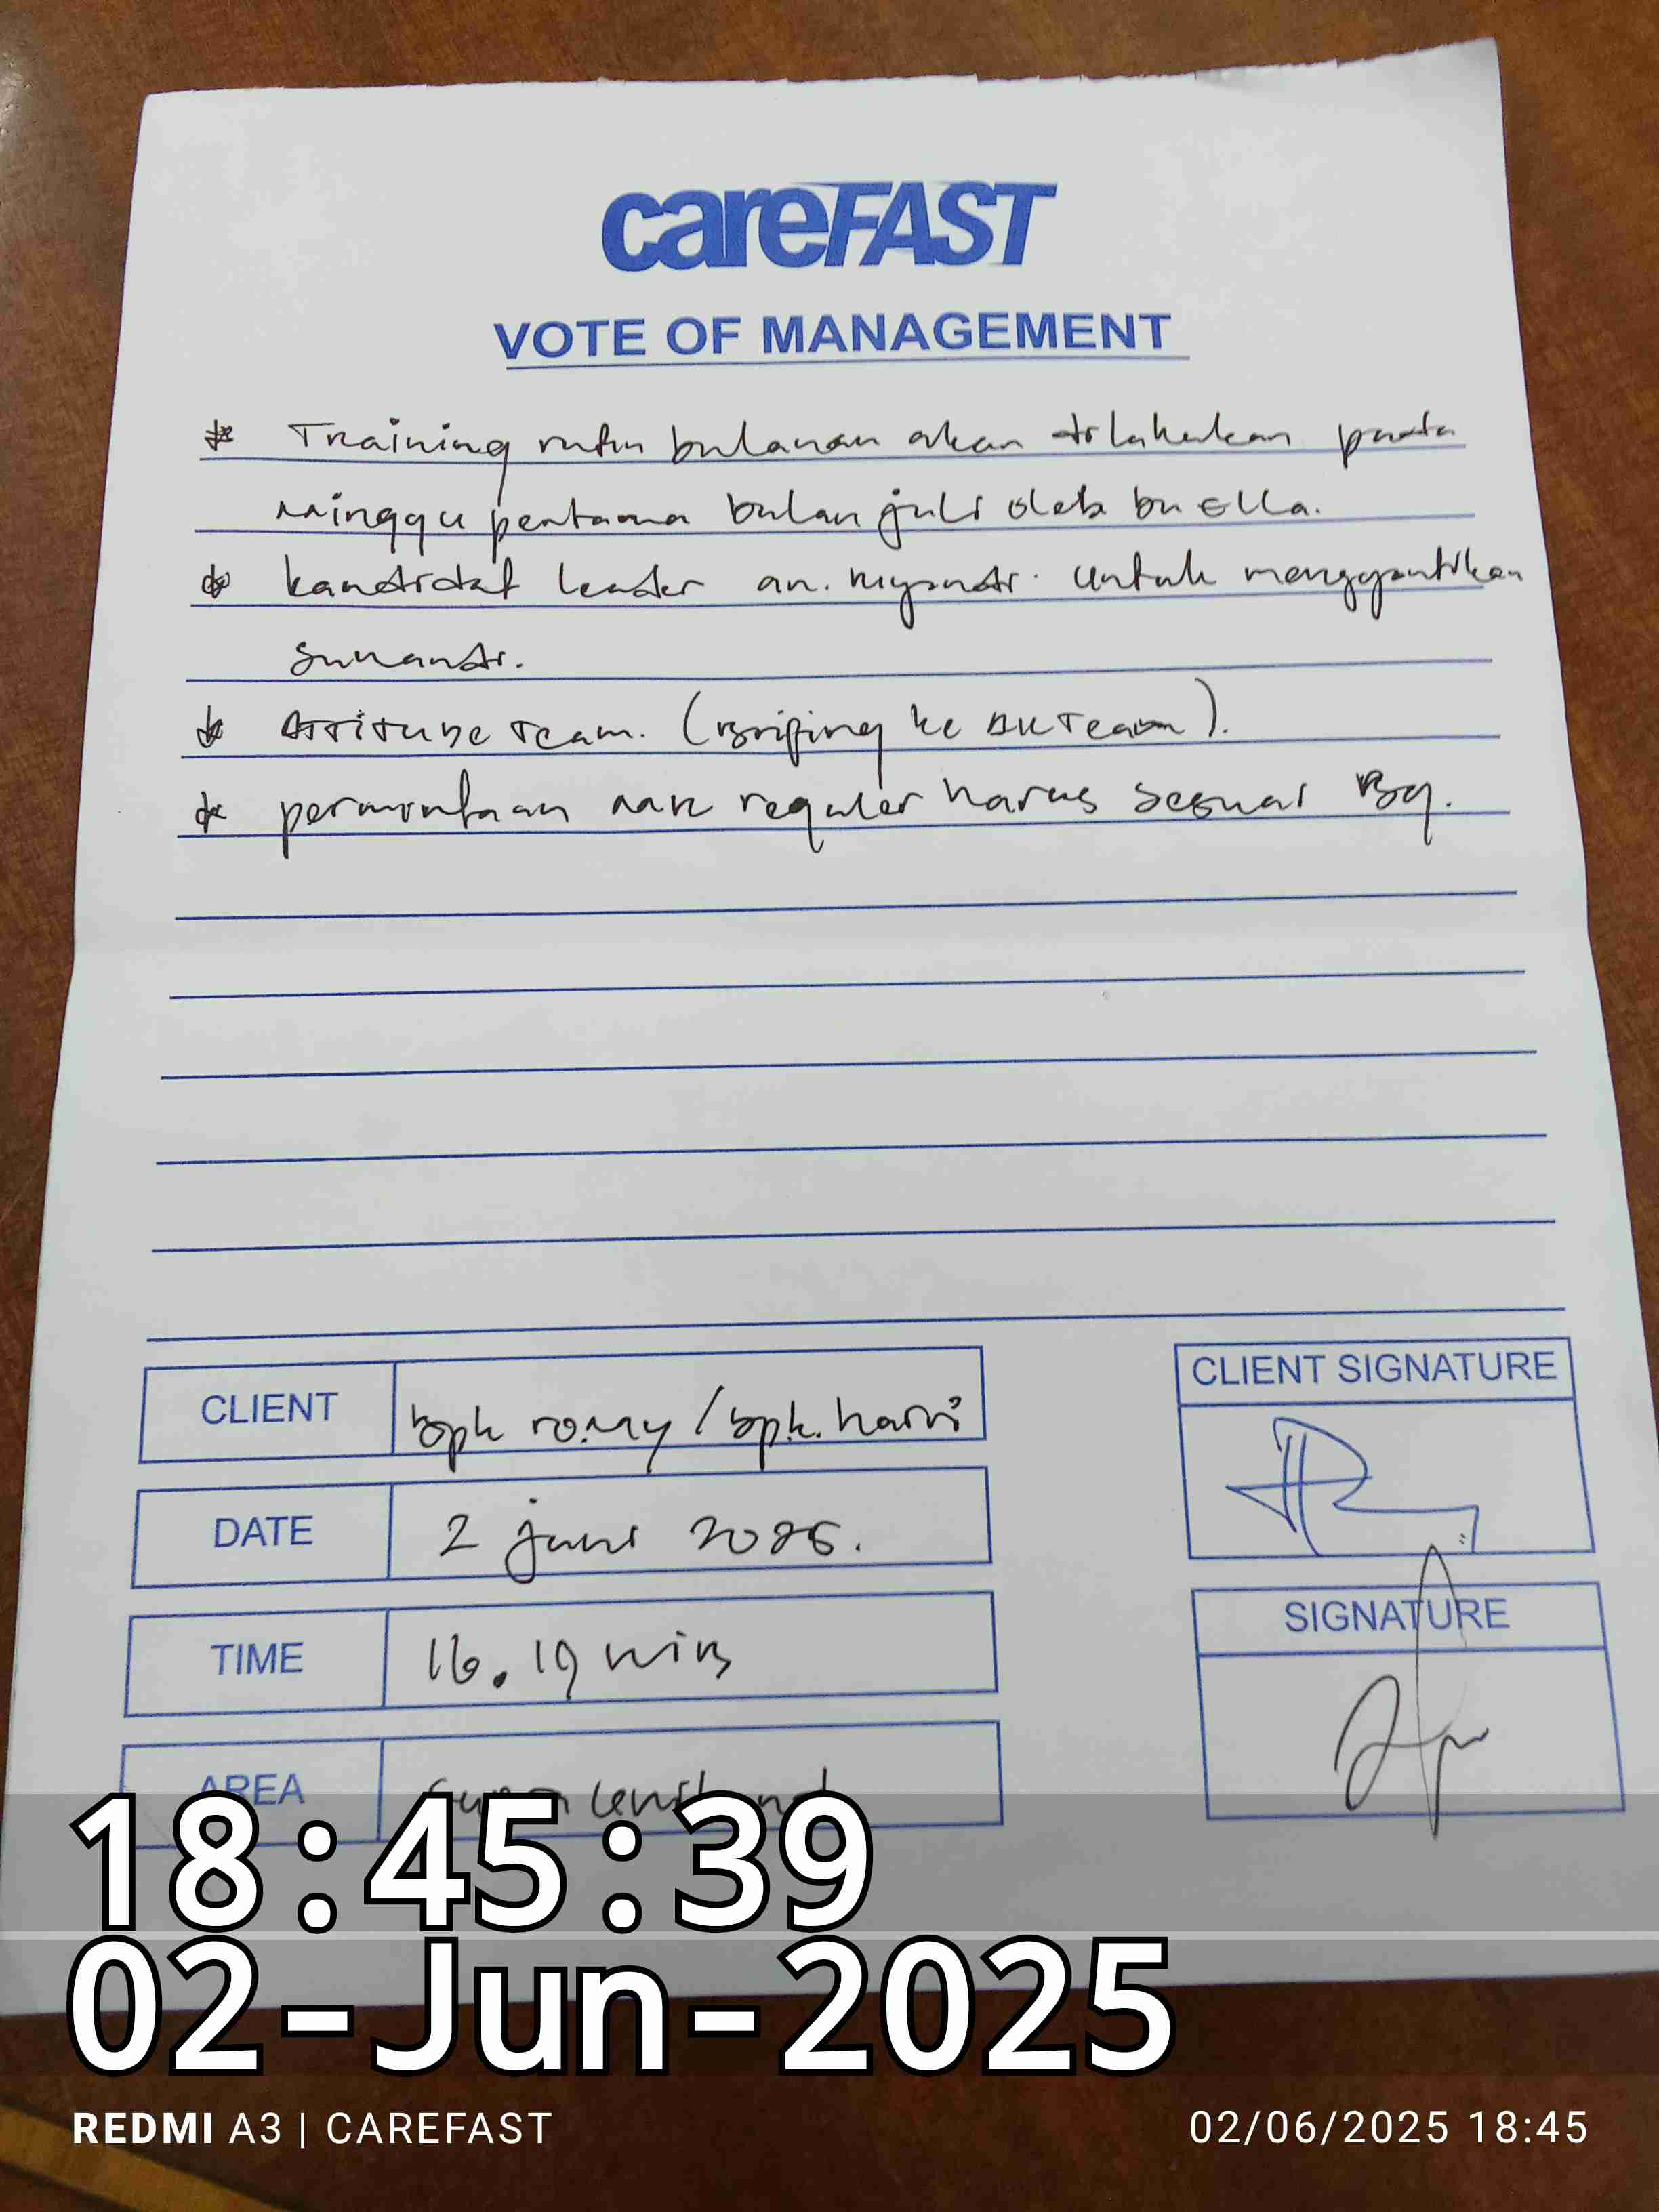 careFAST
VOTE OF MANAGEMENT
* Training rutin bulanan akan dilakukan pada
minggu pertama bulan juli oleh bu Ella.
* kandidat leader an. untuk menggantikan
sunandi.
* Attitude team. (Brifing ke All Team).
* permintaan reguler harus sesuai Bq.
CLIENT bpk romy / bpk. harri
DATE 2 juni 2025.
TIME 16.19 wib
AREA
CLIENT SIGNATURE
SIGNATURE
18:45:39
02-Jun-2025
REDMI A3 | CAREFAST
02/06/2025 18:45